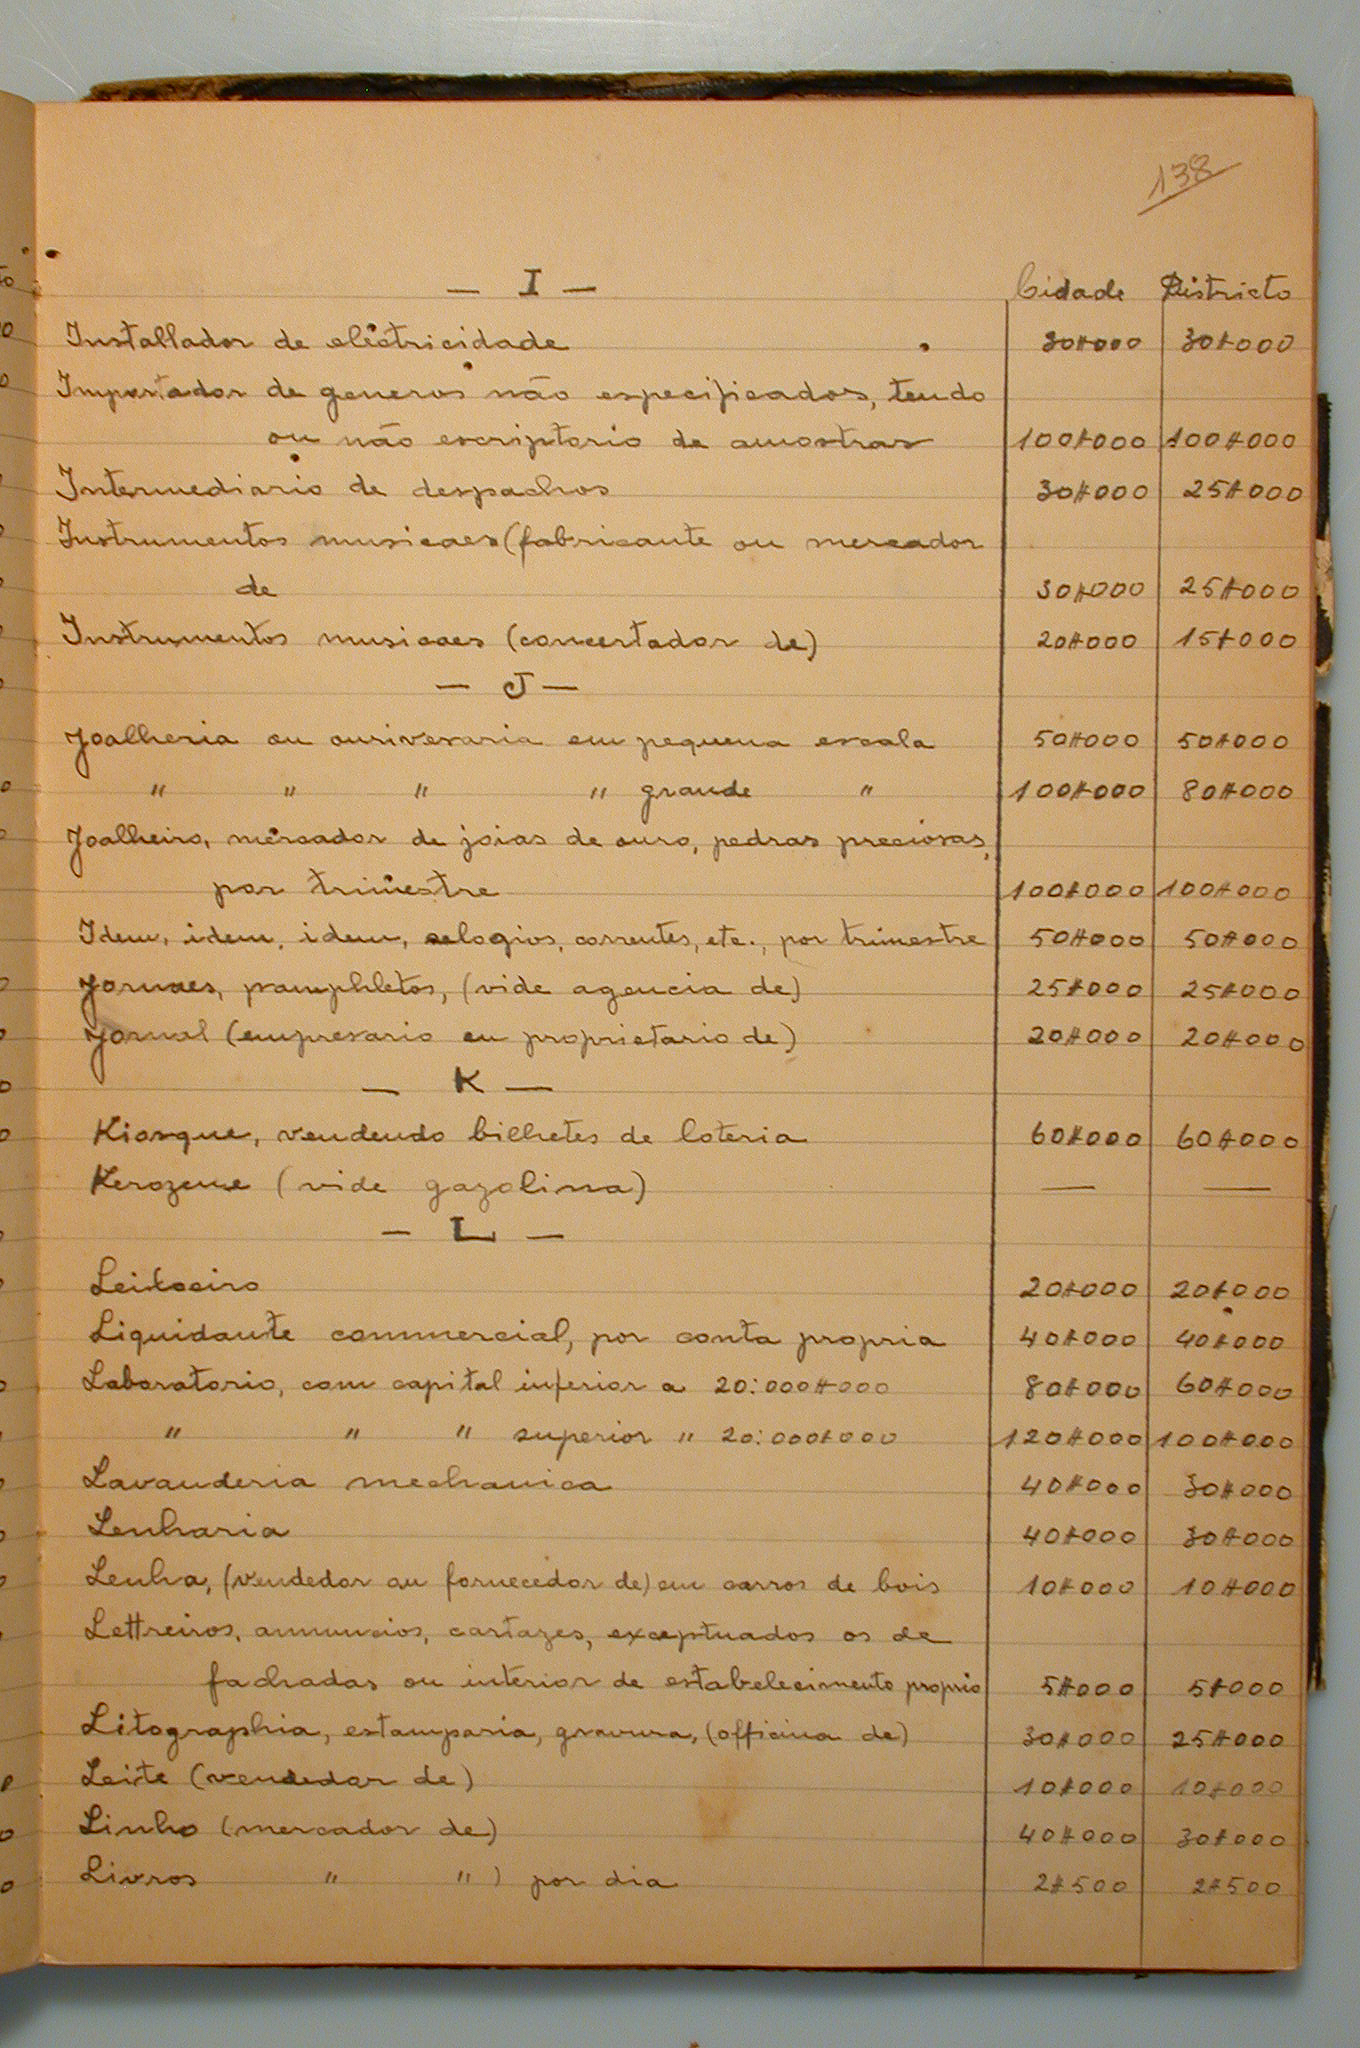 138
— I — Cidade Districto
Installador de eléctricidade 30$000 30$000
Importador de generos não especificados, tendo
ou não escriptorio de amostras 100$000 100$000
Intermediario de despachos 30$000 25$000
Instrumentos musicaes (fabricante ou mercador
de 30$000 25$000
Instrumentos musicaes (concertador de) 20$000 15$000
— J —
Joalheria ou ourivesaria em pequena escala 50$000 50$000
" " " " grande " 100$000 80$000
Joalheiro, mercador de joias de ouro, pedras preciosas,
por trimestre 100$000 100$000
Idem, idem, idem, relogios, correntes, etc., por trimestre 50$000 50$000
Jornaes, pamphletos, (vide agencia de) 25$000 25$000
Jornal (empresario ou proprietario de) 20$000 20$000
— K —
Kiosque, vendendo bilhetes de loteria 60$000 60$000
Kerozene (vide gazolina) — —
— L —
Leiloeiro 20$000 20$000
Liquidante commercial, por conta propria 40$000 40$000
Laboratorio, com capital inferior a 20:000$000 80$000 60$000
" " " superior " 20:000$000 120$000 100$000
Lavanderia mechanica 40$000 30$000
Lenharia 40$000 30$000
Lenha, (vendedor ou fornecedor de) em carros de bois 10$000 10$000
Lettreiros, annuncios, cartazes, exceptuados os de
fachadas ou interior de estabelecimento proprio 5$000 5$000
Litographia, estamparia, gravura, (officina de) 30$000 25$000
Leite (vendedor de) 10$000 10$000
Linho (mercador de) 40$000 30$000
Livros " " ) por dia 2$500 2$500